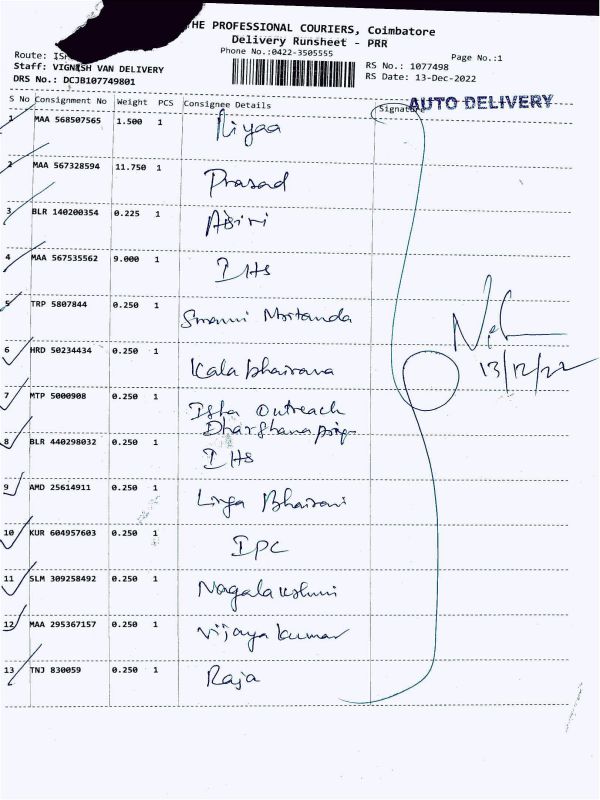 THE PROFESSIONAL COURIERS, Coimbatore
Delivery Runsheet - PRR
Phone No.:0422-3505555
Page No.:1
Route:
Staff: VIGNESH VAN DELIVERY
RS No.: 1077498
DRS No.: DCJB107749801
RS Date: 13-Dec-2022
S No Consignment No Weight PCS Consignee Details Signature
AUTO DELIVERY
1 MAA 568507565 1.500 1 Riyaa
2 MAA 567328594 11.750 1 Prasad
3 BLR 140200354 0.225 1
4 MAA 567535562 9.000 1 IHS
5 TRP 5807844 0.250 1 Swami
6 HRD 50234434 0.250 1 Kala bhairava
7 MTP 5000908 0.250 1 Isha Outreach
8 BLR 440298032 0.250 1 IHS
9 AMD 25614911 0.250 1 Linga Bhairavi
10 KUR 604957603 0.250 1 IPC
11 SLM 309258492 0.250 1 Nagalakshmi
12 MAA 295367157 0.250 1 Vijaya kumar
13 TNJ 830059 0.250 1 Raja
13/12/22